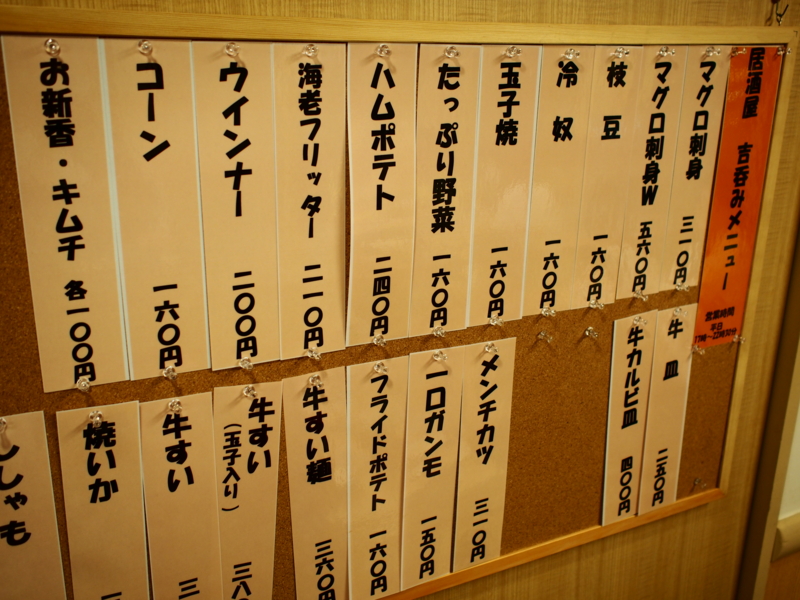 居酒屋 吉呑みメニュー
営業時間
平日
マグロ刺身 三一〇円
マグロ刺身W 五六〇円
枝豆 一六〇円
冷奴 一六〇円
玉子焼 一六〇円
たっぷり野菜 一六〇円
ハムポテト 二四〇円
海老フリッター 二一〇円
ウインナー 二〇〇円
コーン 一六〇円
お新香・キムチ 各一〇〇円
牛皿 二五〇円
牛カルビ皿 四〇〇円
メンチカツ 三一〇円
一口ガンモ 一五〇円
フライドポテト 一六〇円
牛すい麺 三六〇円
牛すい(玉子入り) 三八〇
牛すい 三
焼いか 一
ししゃも